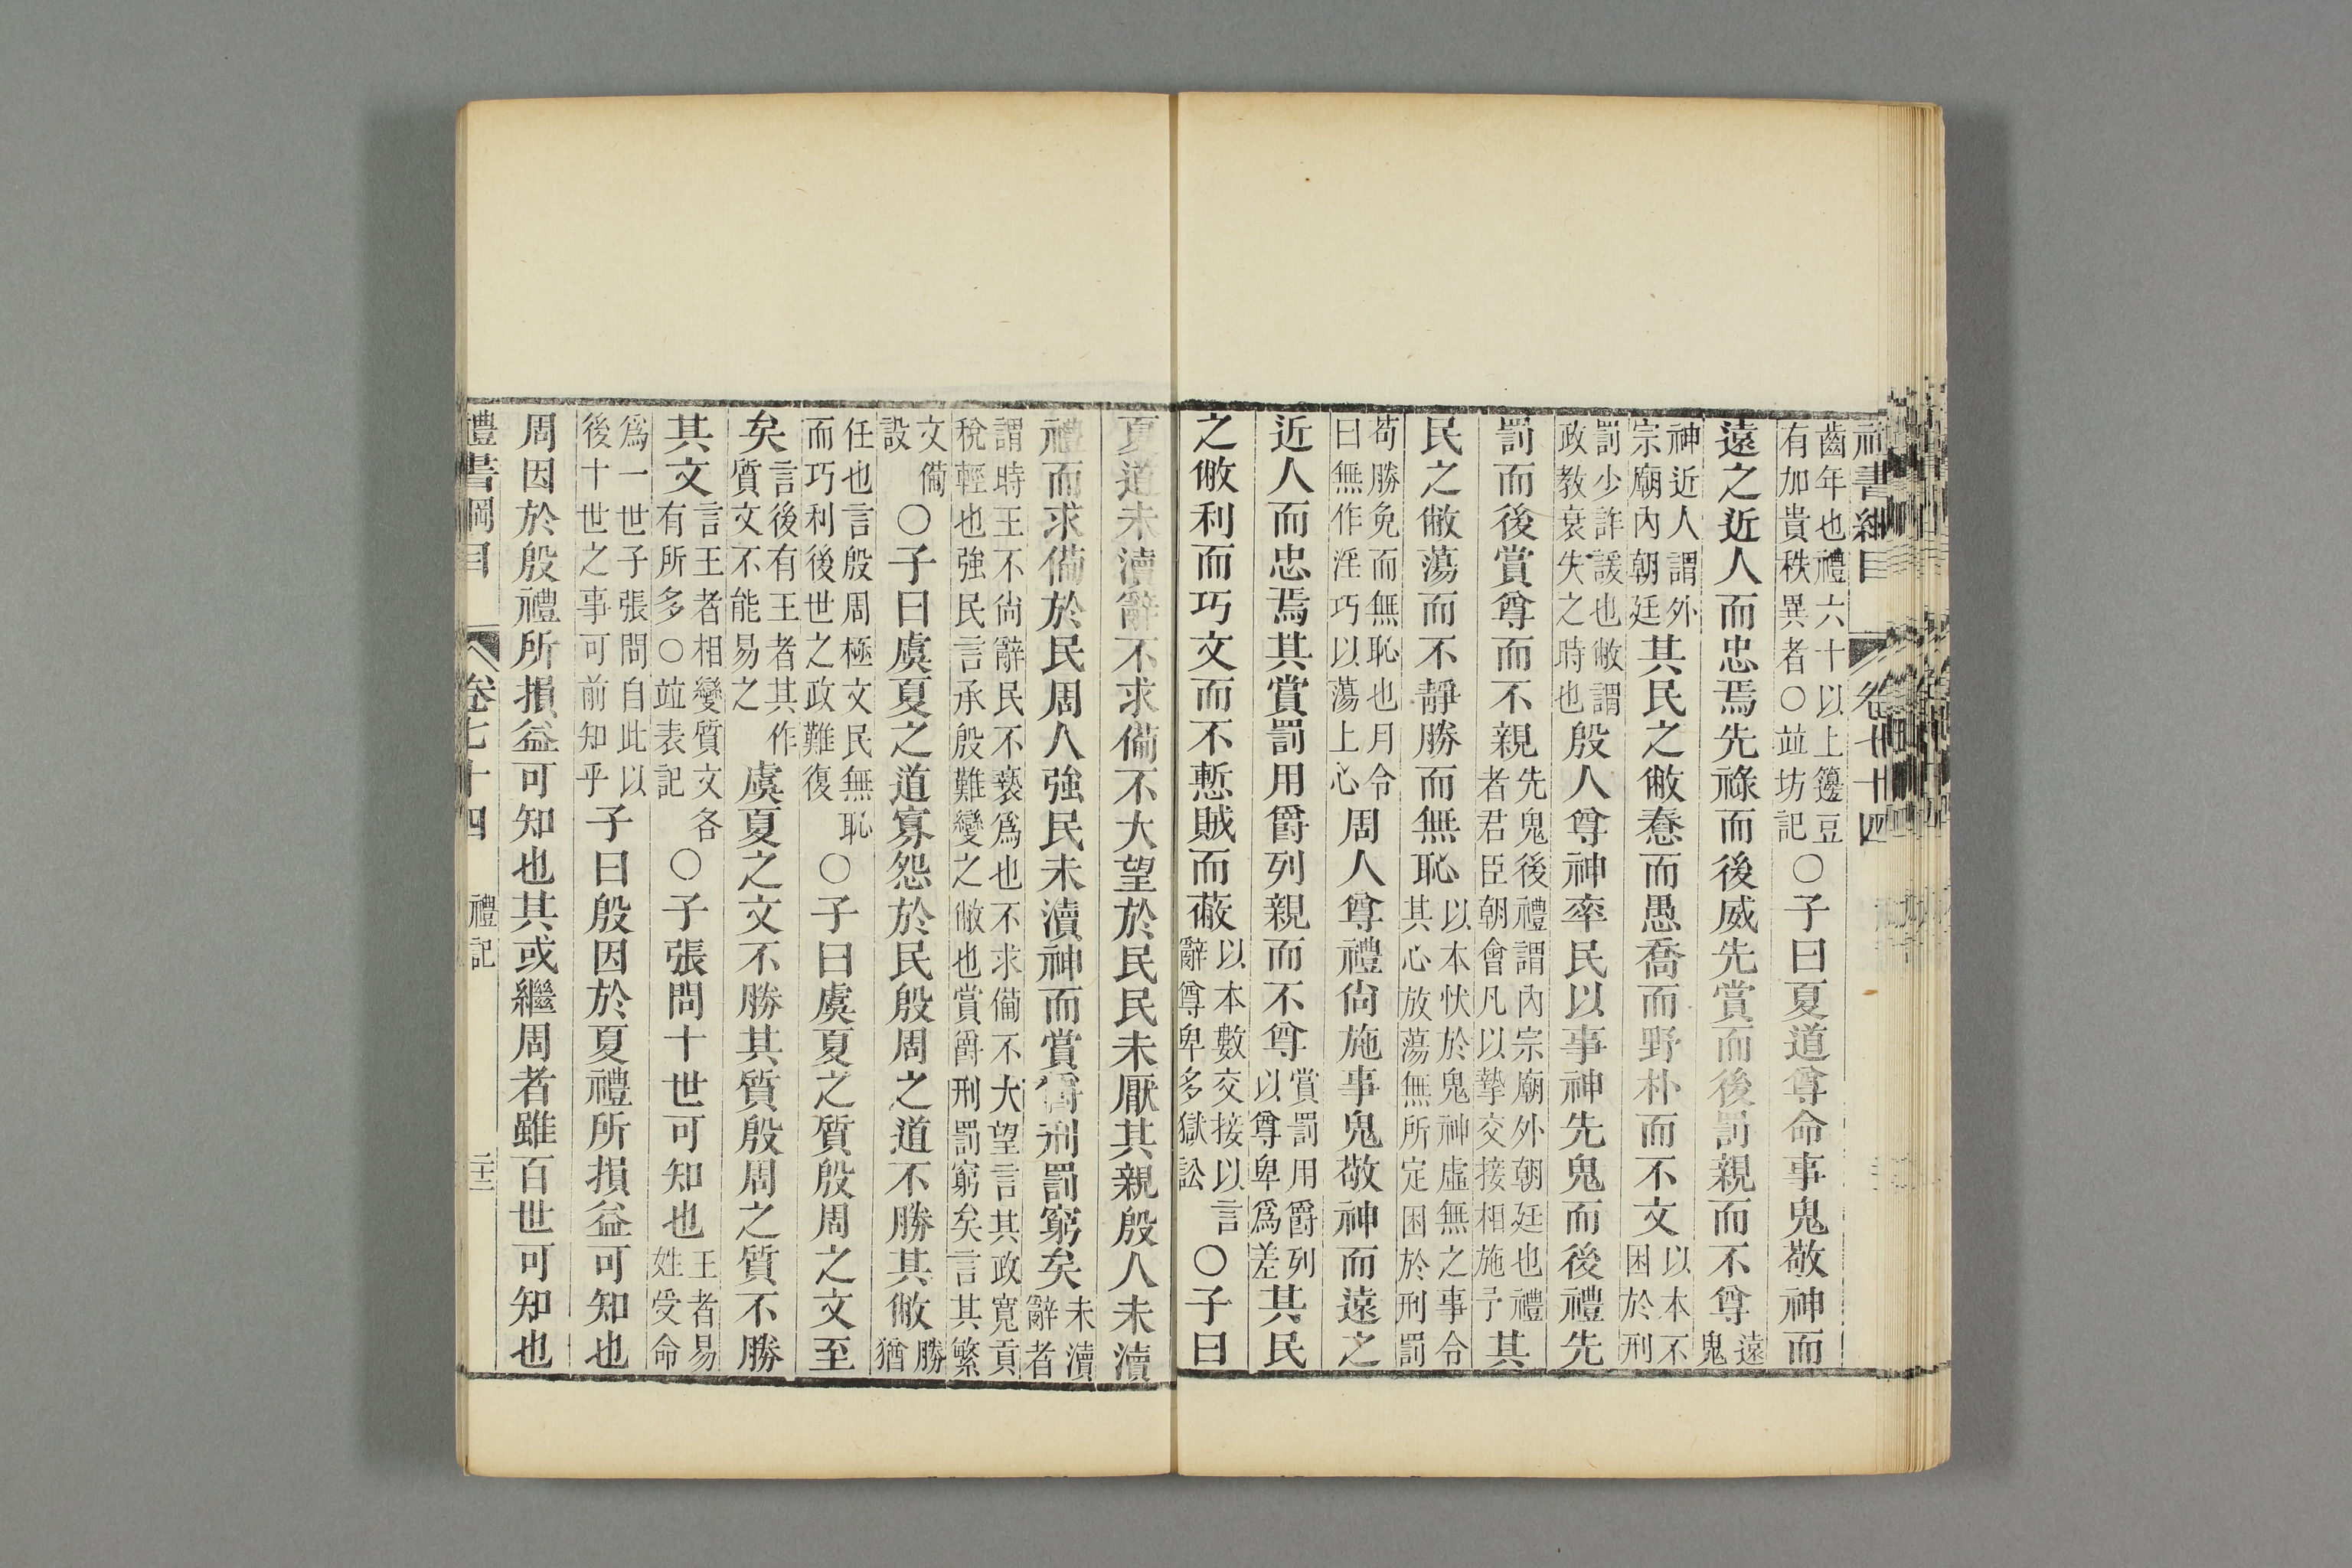 禮書綱目 卷七十四
齒年也禮六十以上籩豆有加貴秩異者○竝坊記○子曰夏道尊命事鬼敬神而
遠之近人而忠焉先祿而後威先賞而後罰親而不尊遠鬼
神近人謂外宗廟內朝廷其民之敝惷而愚喬而野朴而不文以本不困於刑
罰少詐諼也敝謂政教衰失之時也殷人尊神率民以事神先鬼而後禮先
罰而後賞尊而不親先鬼後禮謂內宗廟外朝廷也禮者君臣朝會凡以摯交接相施予其
民之敝蕩而不靜勝而無恥以本忕於鬼神虛無之事令其心放蕩無所定困於刑罰
苟勝免而無恥也月令曰無作淫巧以蕩上心周人尊禮尚施事鬼敬神而遠之
近人而忠焉其賞罰用爵列親而不尊賞罰用爵列以尊卑爲差其民
之敝利而巧文而不慙賊而蔽以本數交接以言辭尊卑多獄訟○子曰
夏道未瀆辭不求備不大望於民民未厭其親殷人未瀆
禮而求備於民周人強民未瀆神而賞爵刑罰窮矣未瀆辭者
謂時王不尚辭民不褻爲也不求備不大望言其政寬貢稅輕也強民言承殷難變之敝也賞爵刑罰窮矣言其繁
文備設○子曰虞夏之道寡怨於民殷周之道不勝其敝勝猶
任也言殷周極文民無恥而巧利後世之政難復○子曰虞夏之質殷周之文至
矣言後有王者其作質文不能易之虞夏之文不勝其質殷周之質不勝
其文言王者相變質文各有所多○竝表記○子張問十世可知也王者易姓受命
爲一世子張問自此以後十世之事可前知乎子曰殷因於夏禮所損益可知也
周因於殷禮所損益可知也其或繼周者雖百世可知也
禮書綱目 卷七十四 禮記 二十三